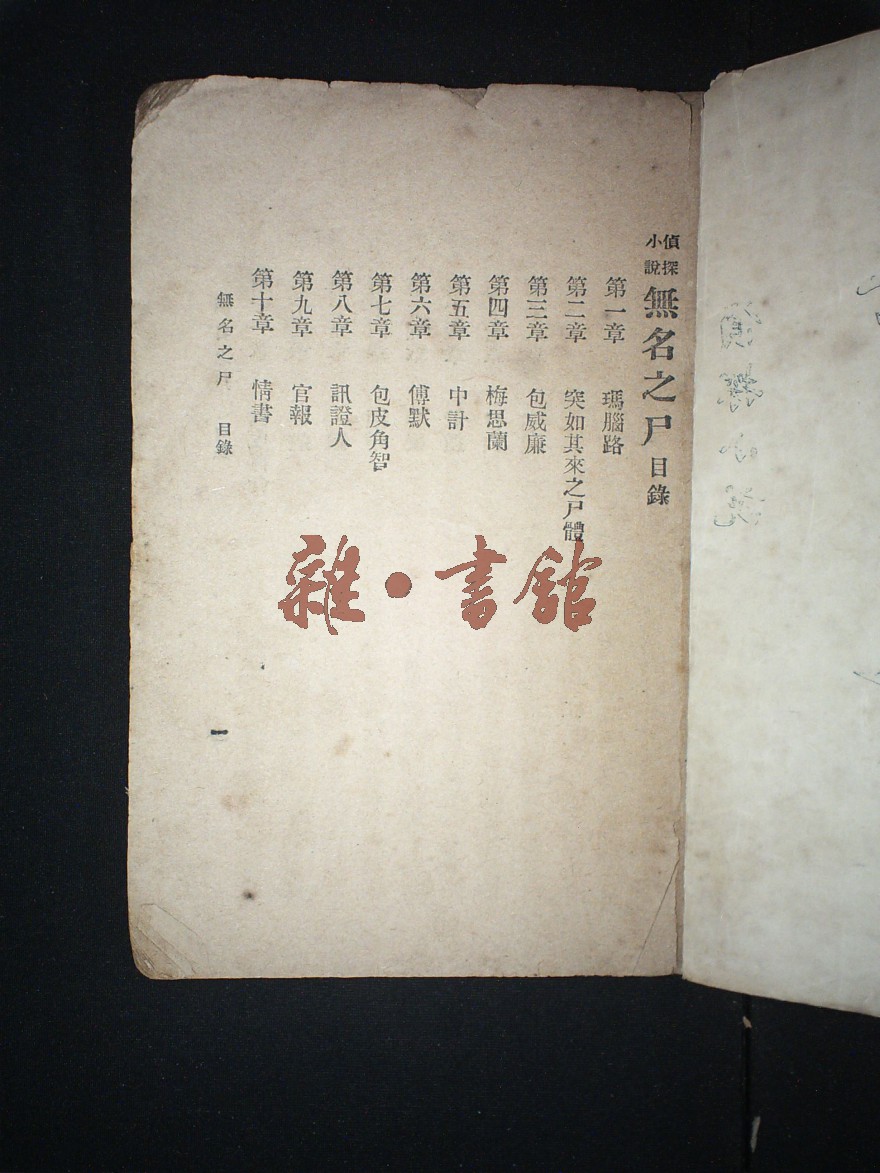 偵探小說 無名之尸 目錄
第一章 瑪腦路
第二章 突如其來之尸體
第三章 包威廉
第四章 梅思蘭
第五章 中計
第六章 傅默
第七章 包皮角智
第八章 訊證人
第九章 官報
第十章 情書
無名之尸 目錄
一
雜·書館